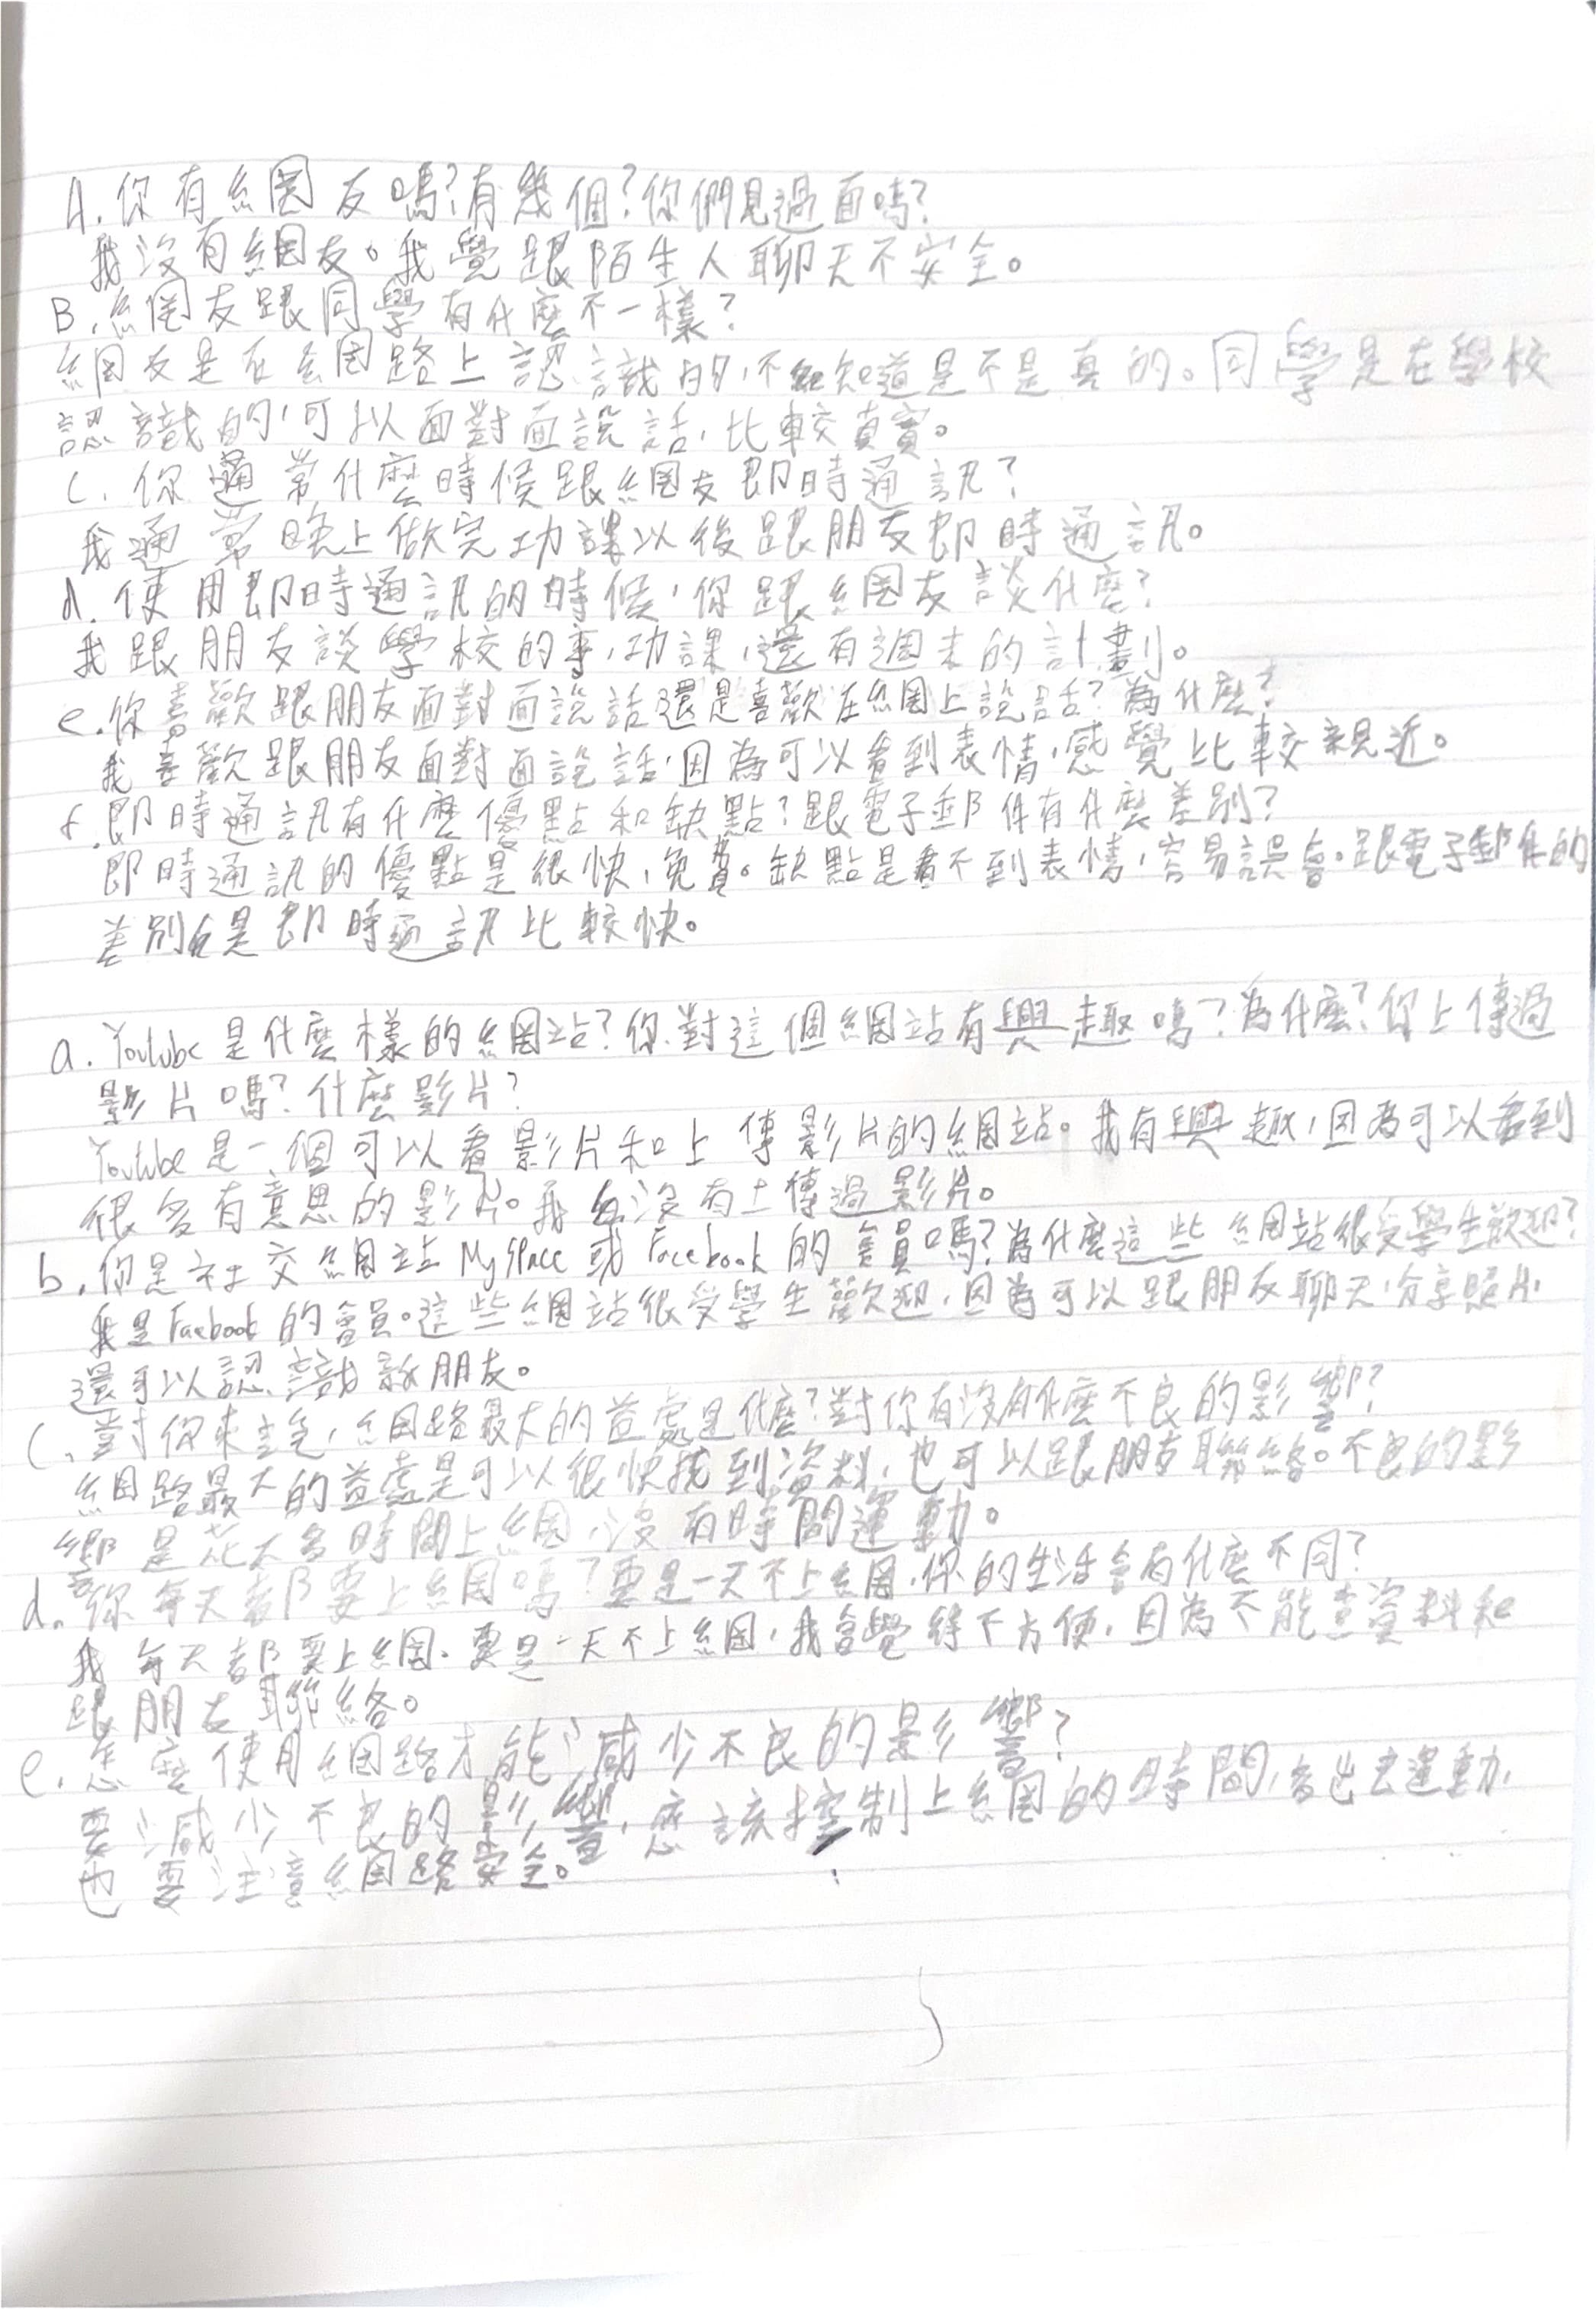 A. 你有網友嗎?有幾個?你們見過面嗎?
我沒有網友。我覺跟陌生人聊天不安全。
B. 網友跟同學有什麼不一樣?
網友是在網路上認識的,不知道是不是真的。同學是在學校
認識的,可以面對面說話,比較真實。
C. 你通常什麼時候跟網友即時通訊?
我通常晚上做完功課以後跟朋友即時通訊。
d. 使用即時通訊的時候,你跟網友談什麼?
我跟朋友談學校的事,功課,還有週末的計劃。
e. 你喜歡跟朋友面對面說話還是喜歡在網上說話?為什麼?
我喜歡跟朋友面對面說話,因為可以看到表情,感覺比較親近。
f. 即時通訊有什麼優點和缺點?跟電子郵件有什麼差別?
即時通訊的優點是很快,免費。缺點是看不到表情,容易誤會。跟電子郵件的
差別是即時通訊比較快。
a. Youtube是什麼樣的網站?你對這個網站有興趣嗎?為什麼?你上傳過
影片嗎?什麼影片?
Youtube是一個可以看影片和上傳影片的網站。我有興趣,因為可以看到
很多有意思的影片。我沒有上傳過影片。
b. 你是社交網站MySpace或Facebook的會員嗎?為什麼這些網站很受學生歡迎?
我是Facebook的會員。這些網站很受學生歡迎,因為可以跟朋友聊天,分享照片,
還可以認識新朋友。
C. 對你來說,網路最大的益處是什麼?對你有沒有什麼不良的影響?
網路最大的益處是可以很快找到資料,也可以跟朋友聯絡。不良的影
響是花太多時間上網,沒有時間運動。
d. 你每天都要上網嗎?要是一天不上網,你的生活會有什麼不同?
我每天都要上網。要是一天不上網,我會覺得不方便,因為不能查資料和
跟朋友聯絡。
e. 怎麼使用網路才能減少不良的影響?
要減少不良的影響,應該控制上網的時間,多出去運動,
也要注意網路安全。